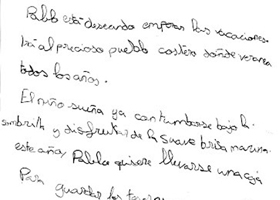 Pablo está deseando empezar las vacaciones.
Irá al precioso pueblo costero dónde veranea
todos los años.
El niño sueña ya con tumbarse bajo la
sombrilla y disfrutar de la suave brisa marina.
este año, Pablo quiere llevarse una caja
Para guardar los